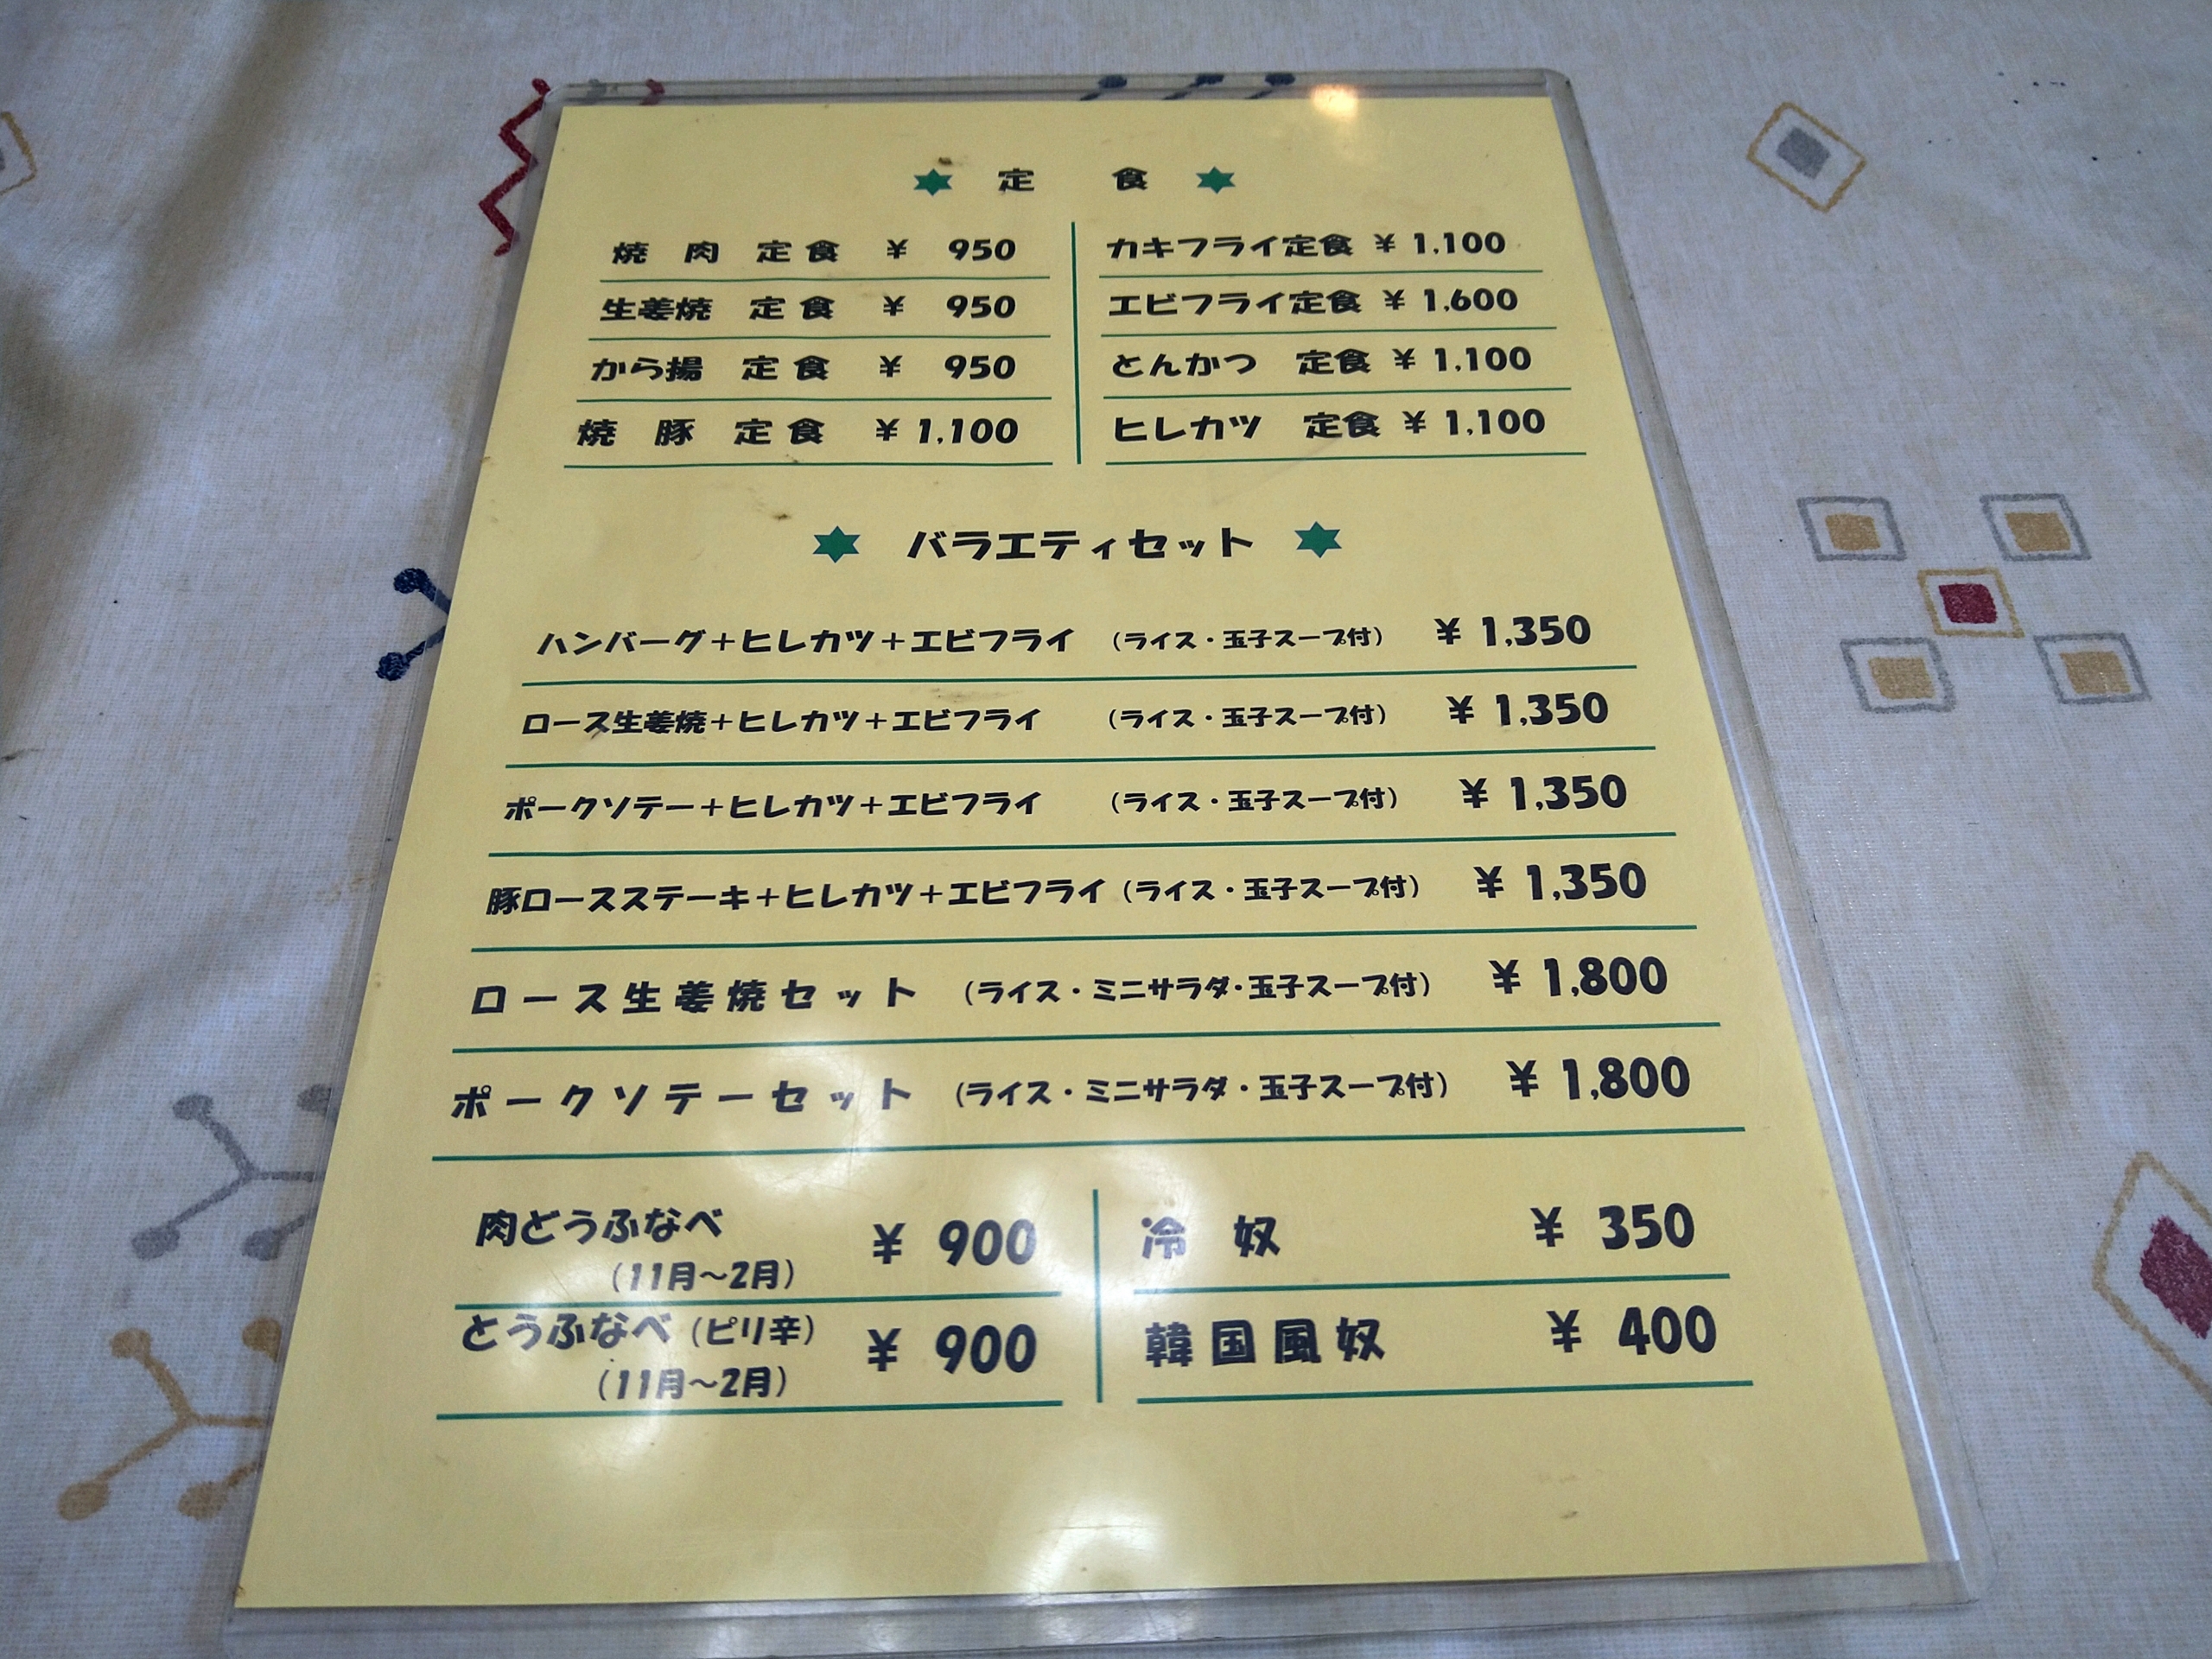 定 食
焼 肉 定 食 ¥ 950
生姜焼 定 食 ¥ 950
から揚 定 食 ¥ 950
焼 豚 定 食 ¥ 1,100
カキフライ定食 ¥ 1,100
エビフライ定食 ¥ 1,600
とんかつ 定食 ¥ 1,100
ヒレカツ 定食 ¥ 1,100
バラエティセット
ハンバーグ+ヒレカツ+エビフライ (ライス・玉子スープ付) ¥ 1,350
ロース生姜焼+ヒレカツ+エビフライ (ライス・玉子スープ付) ¥ 1,350
ポークソテー+ヒレカツ+エビフライ (ライス・玉子スープ付) ¥ 1,350
豚ロースステーキ+ヒレカツ+エビフライ (ライス・玉子スープ付) ¥ 1,350
ロース生姜焼セット (ライス・ミニサラダ・玉子スープ付) ¥ 1,800
ポークソテーセット (ライス・ミニサラダ・玉子スープ付) ¥ 1,800
肉どうふなべ ¥ 900
(11月~2月)
とうふなべ (ピリ辛) ¥ 900
(11月~2月)
冷 奴 ¥ 350
韓国風奴 ¥ 400